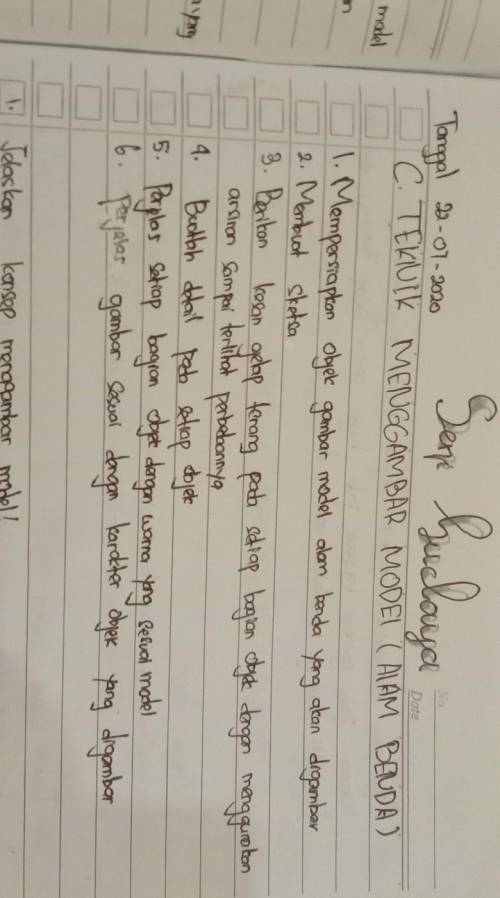 model
n
yang
No.
Date
Seni Budaya
Tanggal 22-07-2020
C. TEKNIK MENGGAMBAR MODEL (ALAM BENDA)
1. Mempersiapkan objek gambar model alam benda yang akan digambar
2. Membuat sketsa
3. Berikan kesan gelap terang pada setiap bagian objek dengan menggunakan
arsiran sampai terlihat perbedaannya
4. Buatlah detail pada setiap objek
5. Perjelas setiap bagian objek dengan warna yang sesuai model
6. Perjelas gambar sesuai dengan karakter objek yang digambar
1. Jelaskan konsep menggambar model!